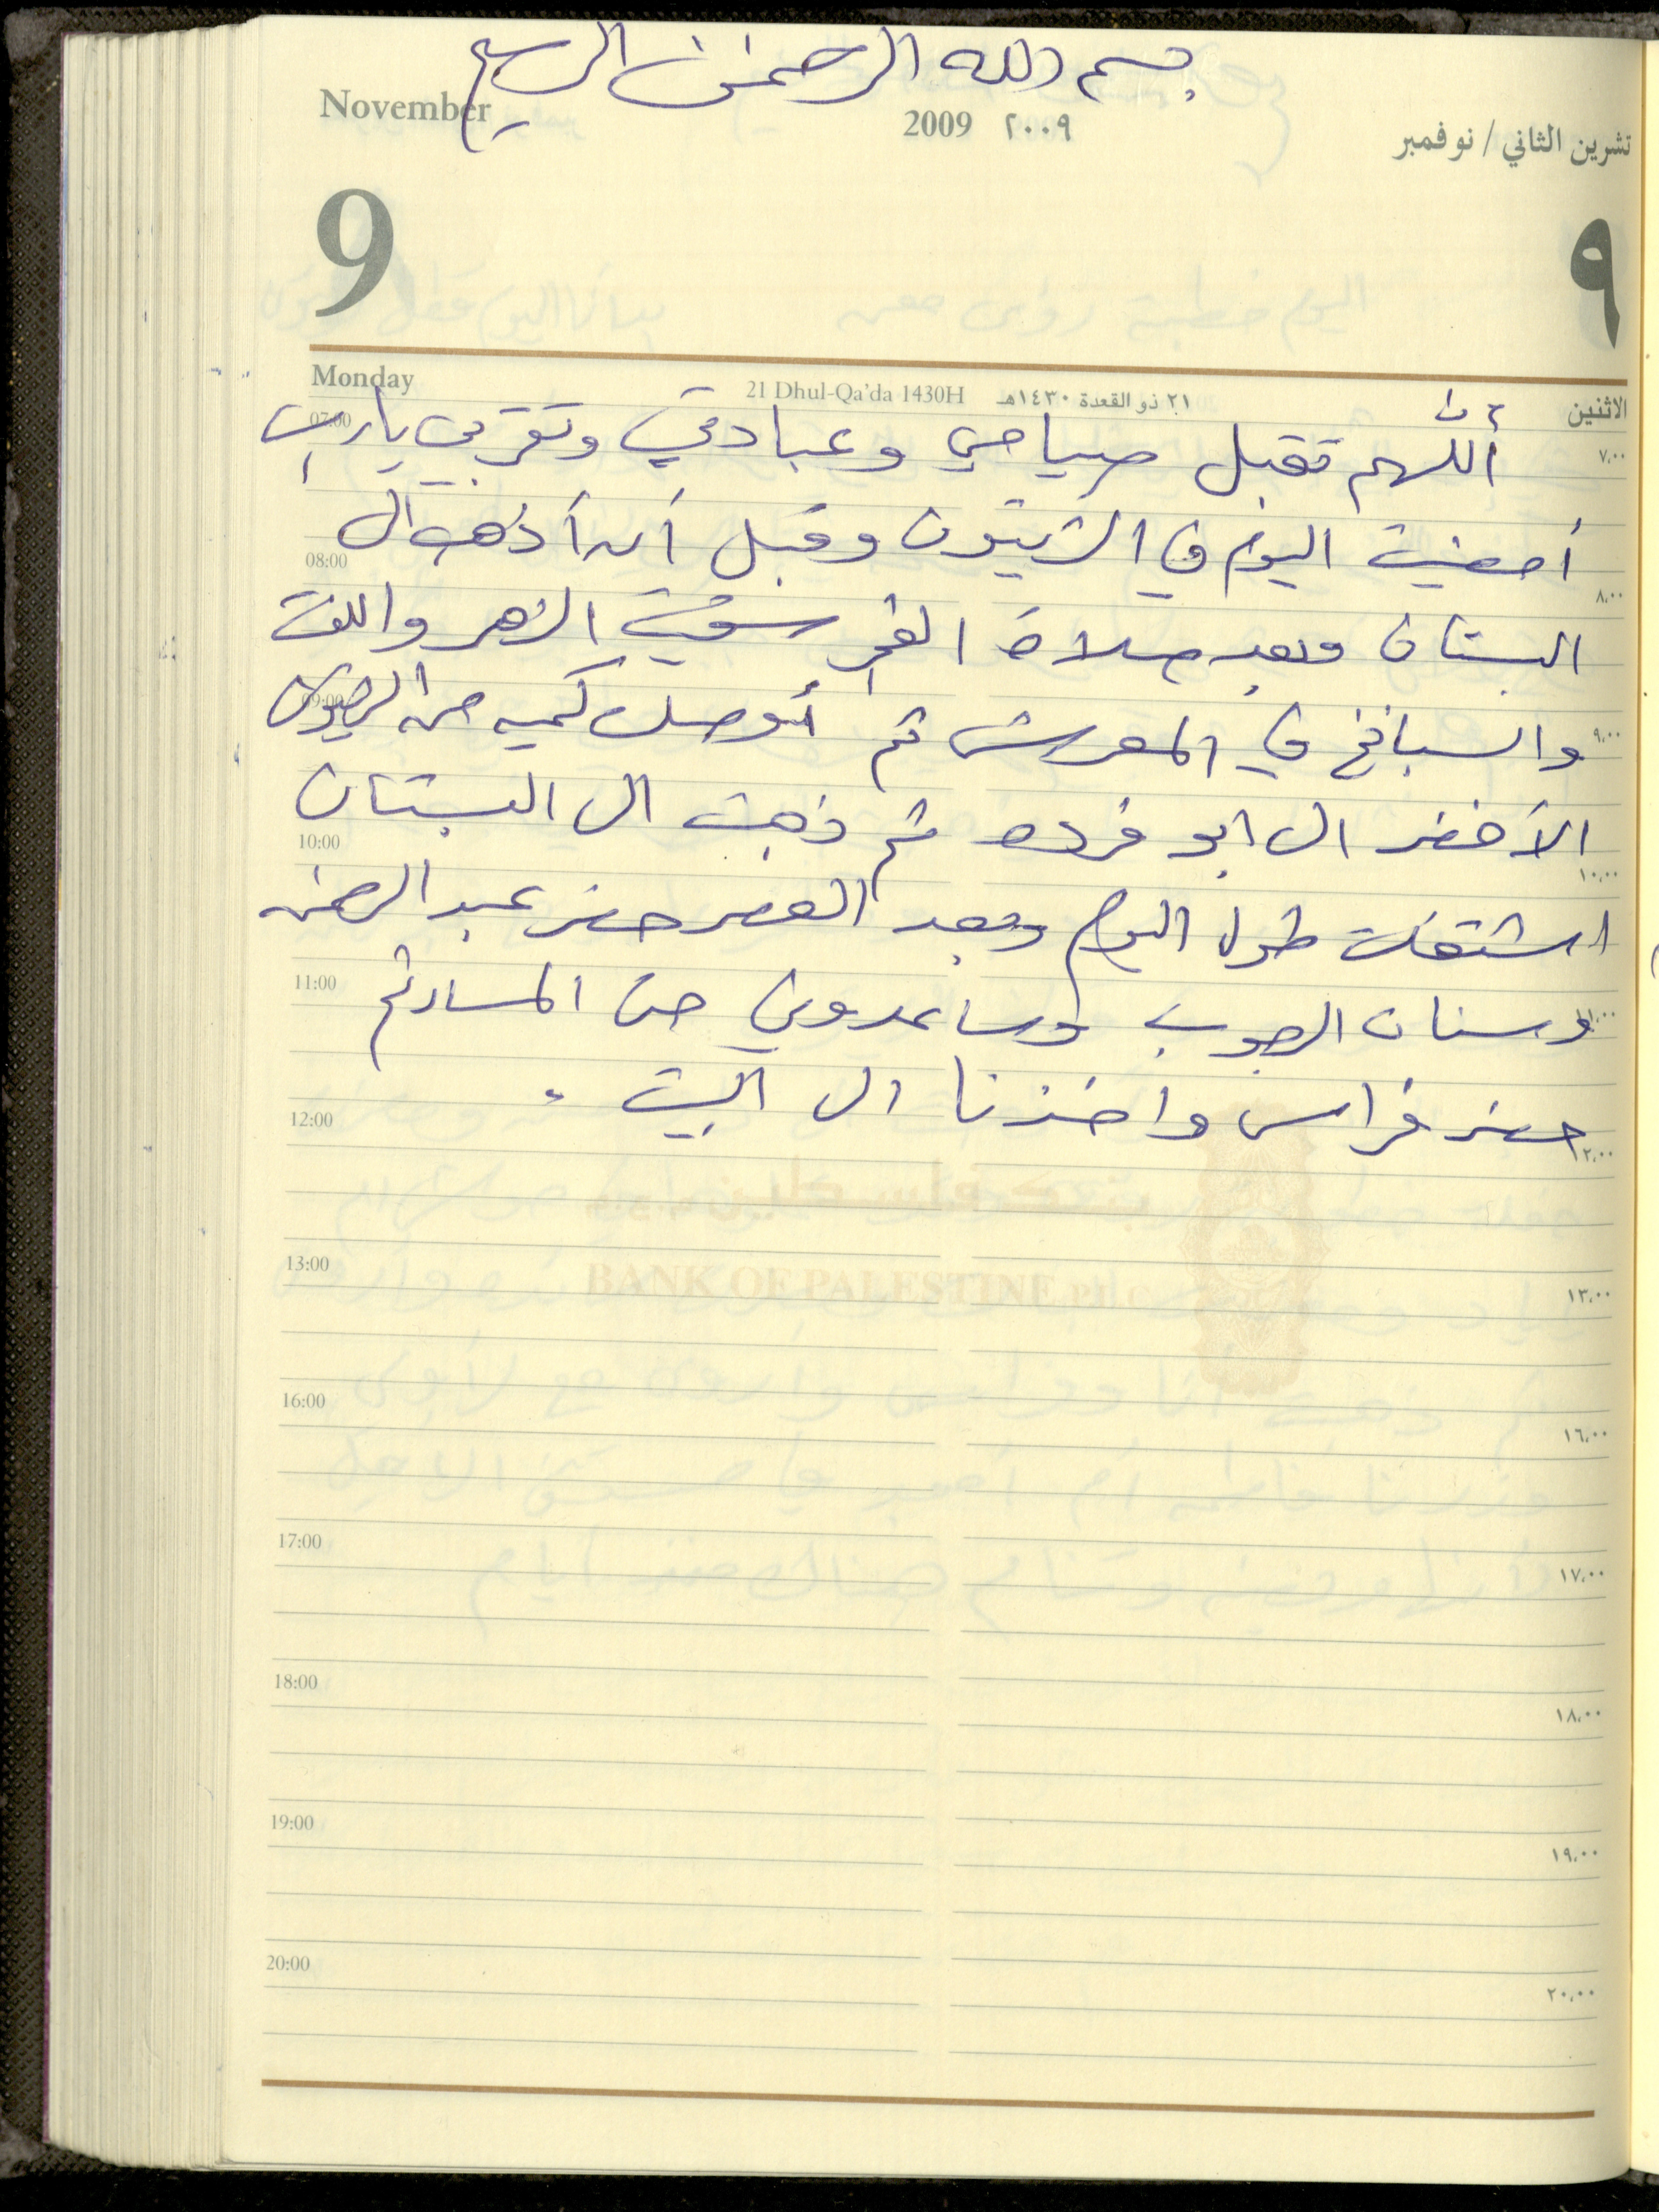 بسم الله الرحمن الرحيم
November
2009 ٢٠٠٩
تشرين الثاني / نوفمبر
9
٩
Monday
21 Dhul-Qa'da 1430H
٢١ ذو القعدة ١٤٣٠هـ
الاثنين
أللهم تقبل صيامي وعبادتي وتقربي يا رب
أمضيت اليوم في الزيتون وقبل أن أذهب ال
البستان وبعد صلاة الفجر سقيت الزهر واللفت
والسبانخ في المعرش ثم أوصل كميه من الزيتون
الأخضر ال ابو فرده ثم ذهبت ال البستان
اشتغلت طول اليوم وبعد العصر حضر عبد الرحمن
وسنان الرجوب وساعدوني حتى المساء ثم
حضر فراس واخذنا ال البيت .
07:00
٧،٠٠
08:00
٨،٠٠
09:00
٩،٠٠
10:00
١٠،٠٠
11:00
١١،٠٠
12:00
١٢،٠٠
بنك فلسطين
BANK OF PALESTINE P.L.C
13:00
١٣،٠٠
16:00
١٦،٠٠
17:00
١٧،٠٠
18:00
١٨،٠٠
19:00
١٩،٠٠
20:00
٢٠،٠٠